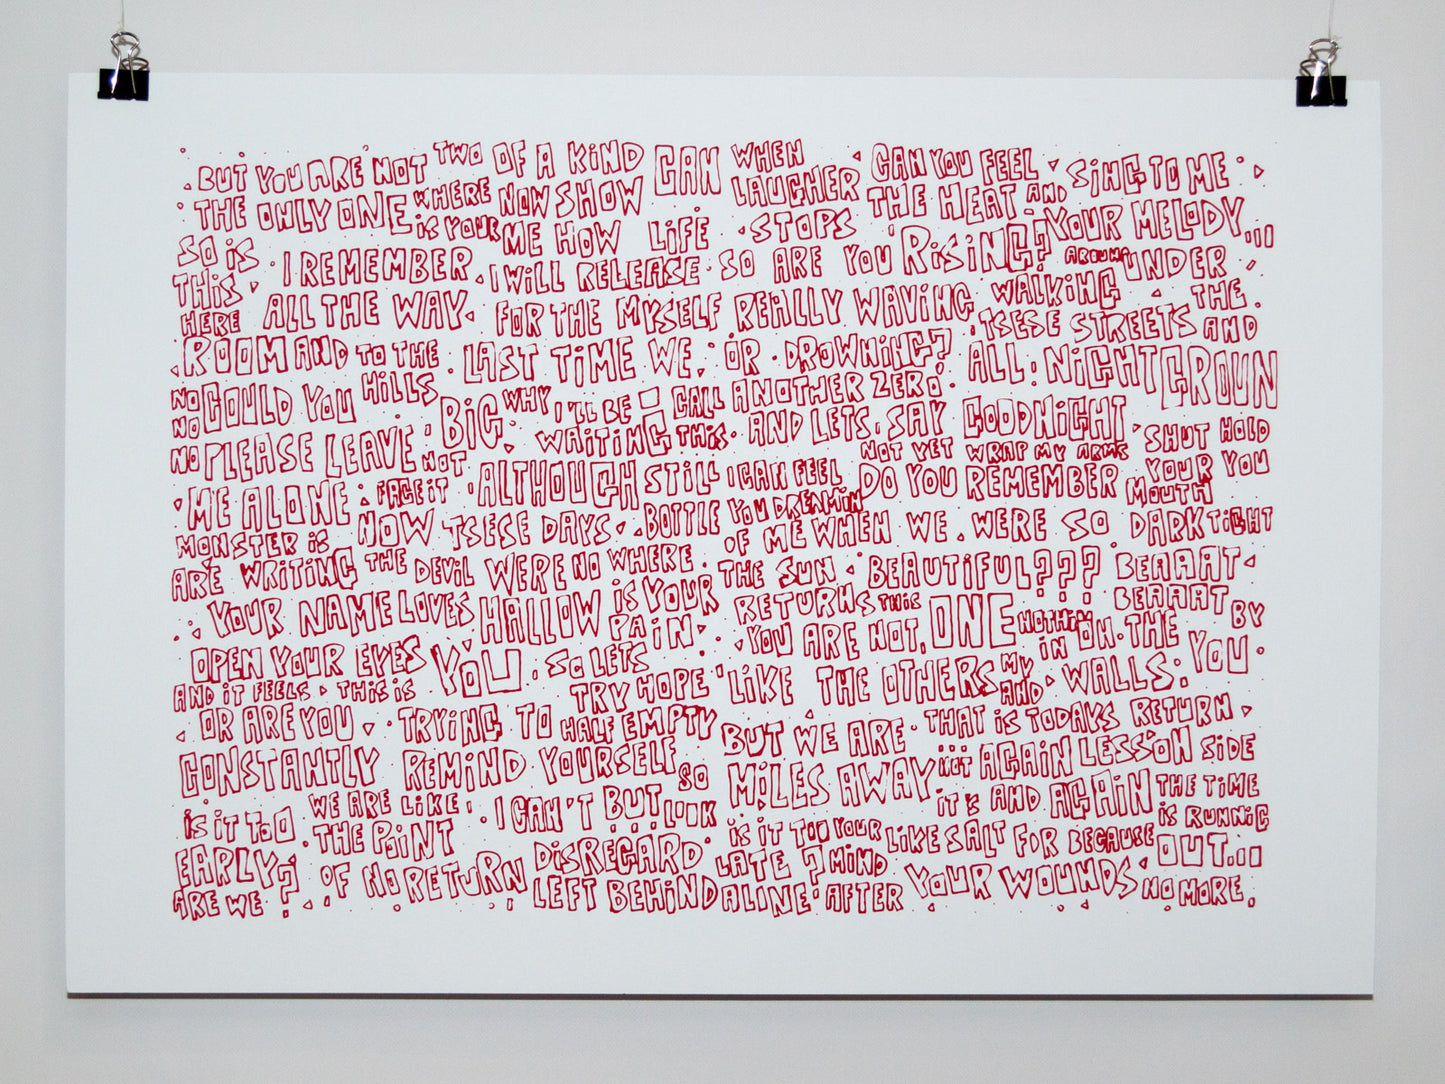 BUT YOU ARE NOT TWO OF A KIND CAN WHEN CAN YOU FEEL SING TO ME
THE ONLY ONE WHERE NOW SHOW LAUGHER THE HEAT AND YOUR MELODY...
SO IS I REMEMBER IS YOUR ME HOW LIFE STOPS RISING? AROUND UNDER
THIS I WILL RELEASE SO ARE YOU WALKING THE
HERE ALL THE WAY FOR THE MYSELF REALLY WAVING TSESE STREETS AND
ROOM AND TO THE LAST TIME WE OR DROWNING? ALL NIGHT GROUN
NO COULD YOU HILLS BIG WHY I'LL BE CALL ANOTHER ZERO
NO WAITING THIS AND LETS SAY GOODNIGHT SHUT HOLD
NO PLEASE LEAVE NOT ALTHOUGH STILL I CAN FEEL NOT YET WRAP MY ARMS YOUR YOU
ME ALONE FACE IT YOU DREAMIN DO YOU REMEMBER MOUTH
MONSTER IS NOW TSESE DAYS BOTTLE OF ME WHEN WE WERE SO DARK TIGHT
ARE WRITING THE DEVIL WERE NO WHERE THE SUN BEAUTIFUL??? BEAAAT
YOUR NAME LOVES HALLOW IS YOUR RETURNS THIS ONE NOTHIN BEAAAT BY
OPEN YOUR EYES YOU PAIN YOU ARE NOT, IN ON THE YOU
AND IT FEELS THIS IS SO LETS TRY HOPE LIKE THE OTHERS MY AND WALLS
OR ARE YOU TRYING TO HALF EMPTY BUT WE ARE THAT IS TODAYS RETURN
CONSTANTLY REMIND YOURSELF SO MILES AWAY NOT AGAIN LESSON SIDE
IS IT TOO WE ARE LIKE I CAN'T BUT LOOK IT'S AND AGAIN THE TIME
EARLY? THE POINT DISREGARD IS IT TOO YOUR LIKE SALT FOR BECAUSE IS RUNNIG
ARE WE OF NO RETURN LEFT BEHIND LATE? MIND YOUR WOUNDS OUT...
ALINE AFTER NO MORE